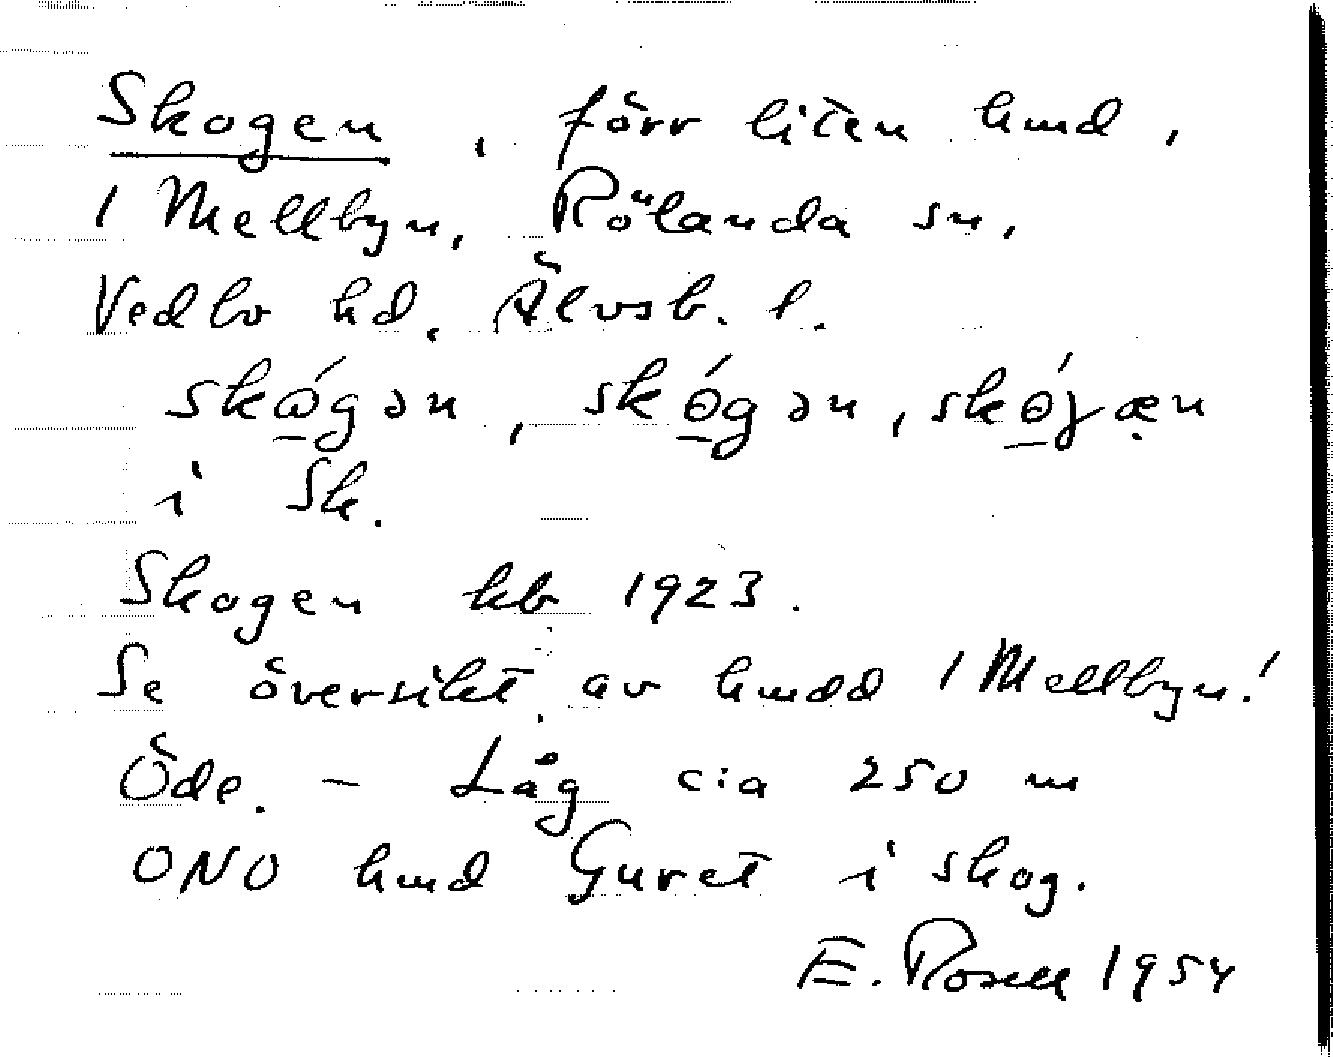 Skogen, förr liten hmd,
1 Mellbyn, Rölanda sn,
Vedbo hd, Älvsb. l.
skώ̲gən, skó̲gən, skó̲ɟæ̣n
i Sk.
Skogen kb 1923.
Se översikt av hmdd 1 Mellbyn!
Öde. – Låg c:a 250 m
ONO hmd Guret i skog.
E. Rosell 1954